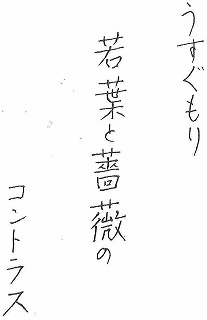 うすぐもり
若葉と薔薇の
コントラス